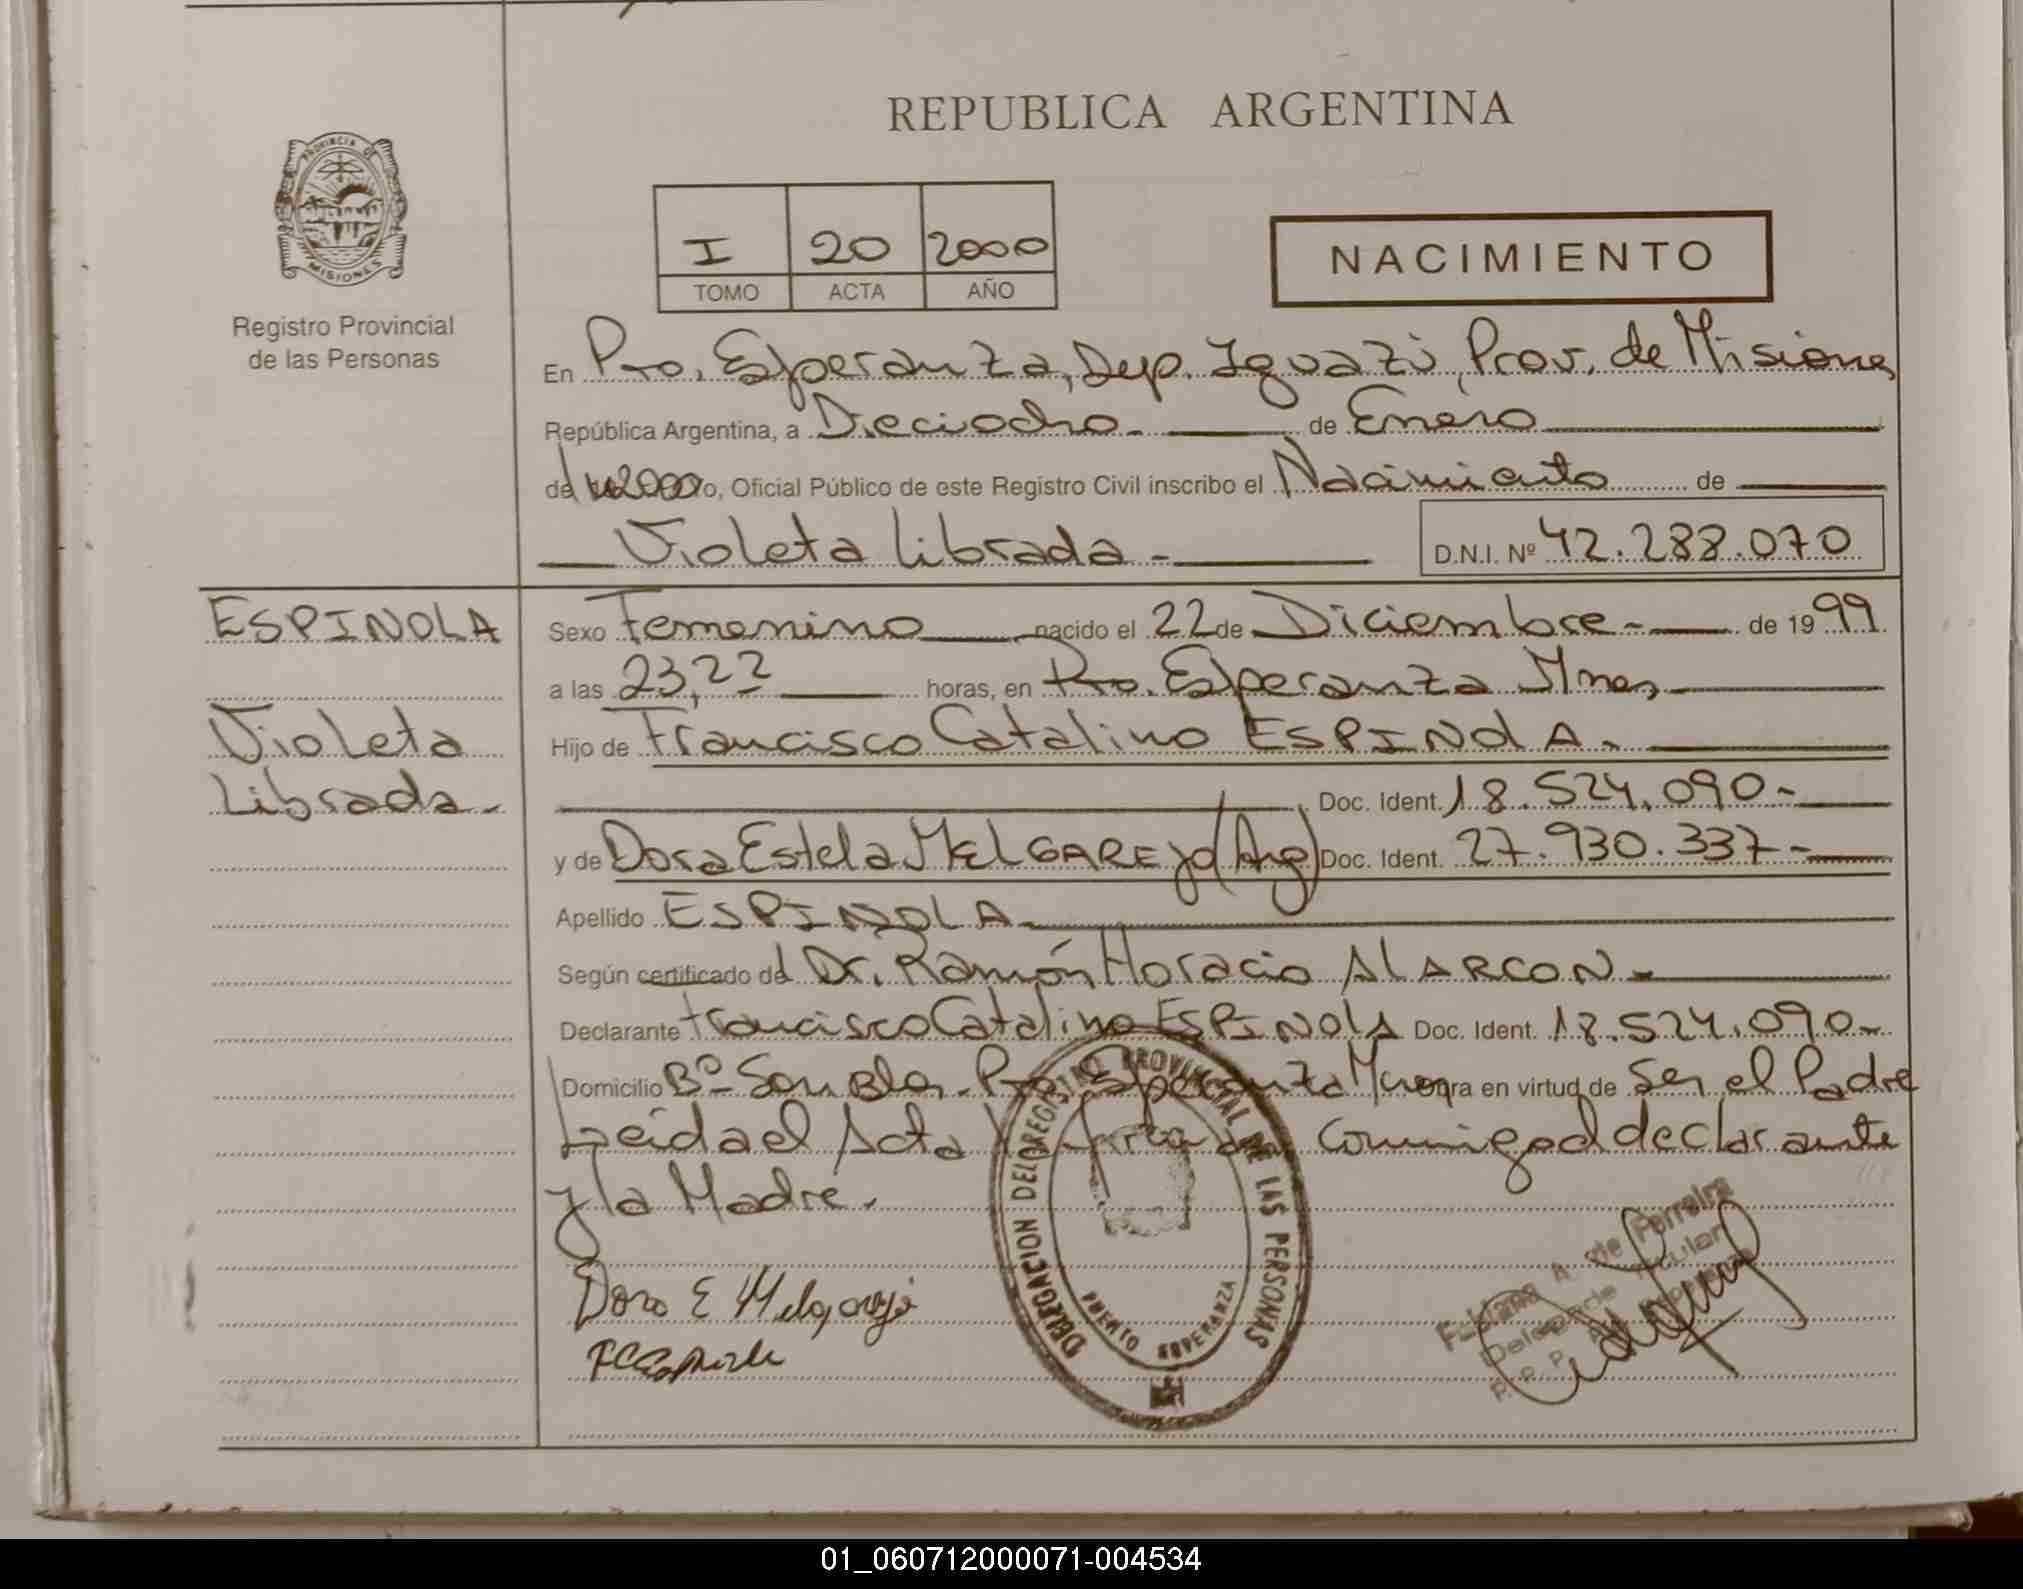 REPUBLICA ARGENTINA
PROVINCIA DE
MISIONES
Registro Provincial
de las Personas
I 20 2000
TOMO ACTA AÑO
NACIMIENTO
En Pto. Esperanza, Dep. Iguazú, Prov. de Misiones
República Argentina, a Dieciocho - de Enero
del 2000, Oficial Público de este Registro Civil inscribo el Nacimiento de
Violeta Librada - D.N.I. Nº 42.288.070
ESPINOLA
Violeta
Librada -
Sexo Femenino nacido el 22 de Diciembre - de 1999
a las 23,22 horas, en Pto. Esperanza Mnes,
Hijo de Francisco Catalino ESPINOLA.
Doc. Ident. 18.524.090-
y de Dora Estela MELGAREJO (Arg) Doc. Ident. 27.930.337-
Apellido ESPINOLA-
Según certificado del Dr. Ramón Horacio ALARCON-
Declarante Francisco Catalino ESPINOLA Doc. Ident. 18.524.090-
Domicilio Bº San Blas - Pto. Esperanza Mnes obra en virtud de Ser el Padre
Leida el Acta conmigo el declarante
y la Madre.
Dora E Melgarejo
DELEGACION DEL REGISTRO PROVINCIAL DE LAS PERSONAS
PUERTO ESPERANZA
Fabiana A. de Ferreira
Delegada Titular
01_060712000071-004534